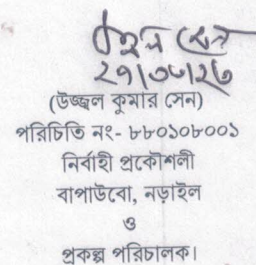 ২৭/০৮/২৬
(উজ্জ্বল কুমার সেন)
পরিচিতি নং- ৮৮০১০৮০০১
নির্বাহী প্রকৌশলী
বাপাউবো, নড়াইল
ও
প্রকল্প পরিচালক।